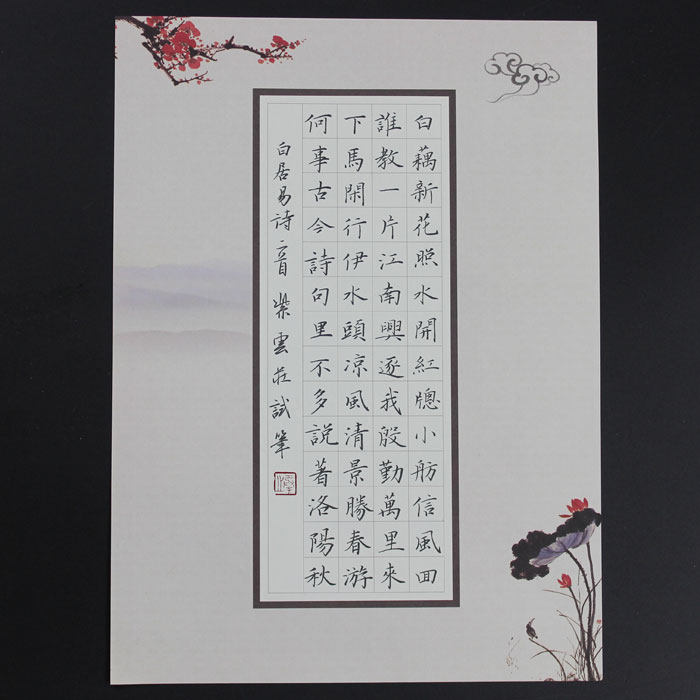 白藕新花照水開紅牎小舫信風囬
誰教一片江南興逐我殷勤萬里來
下馬閑行伊水頭凉風清景勝春游
何事古今詩句里不多説著洛陽秋
白居易詩二首 紫雲莊試筆